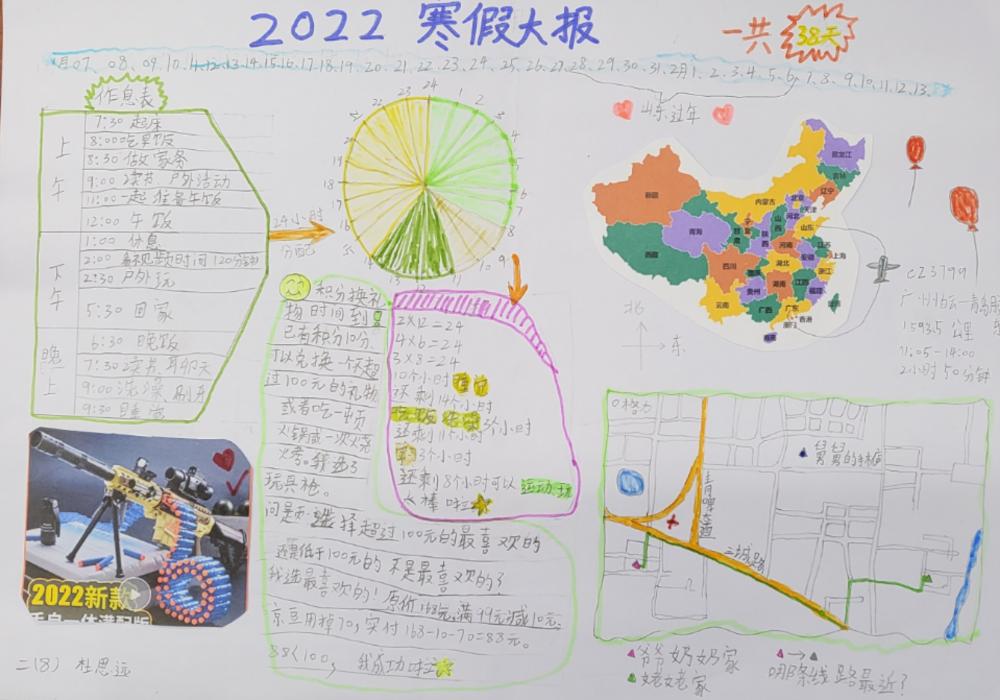 2022 寒假大报
一共 38天
月07、08、09、10、11、12、13、14、15、16、17、18、19、20、21、22、23、24、25、26、27、28、29、30、31、2月1、2、3、4、5、6、7、8、9、10、11、12、13、
作息表
上午
7:30 起床
8:00吃早饭
8:30 做家务
9:00 读书 户外活动
11:00一起准备午饭
12:00 午饭
下午
1:00 休息
2:00 看视频时间(20分钟)
2:30 户外玩
5:30 回家
晚上
6:30 晚饭
7:30 读书、聊天
9:00 洗澡 刷牙
9:30 睡觉
24小时
分配
24 1 2 4 6 8 9 10 14 15 16 17 18 19 20 22 23
山东过年
新疆
西藏
青海
内蒙古
黑龙江
吉林
辽宁
北京
天津
河北
山西
山东
陕西
河南
江苏
安徽
上海
湖北
浙江
四川
贵州
湖南
江西
福建
云南
广西
广东
香港
澳门
海南
北
东
CZ3799
1593.5 公里
11:05-14:00
2小时50分钟
积分换礼
物时间到!
已有积分10分
可以兑换一个不超
过100元的礼物
或者吃一顿
火锅或一次烧
烤。我选了
玩具枪。
问题:选择超过100元的最喜欢的
还是低于100元的不是最喜欢的?
我选最喜欢的!原价163元,满99元减10元,
京豆用掉70,实付163-10-70=83元。
83<100, 我成功啦
2×12=24
4×6=24
3×8=24
10个小时睡觉
还剩14个小时
3个小时
还剩11个小时
3个小时
还剩8个小时可以运动、玩
太棒啦
2022新款
二(8) 杜思远
舅舅的
三城路
爷爷奶奶家
姥姥家
哪条线路最近?